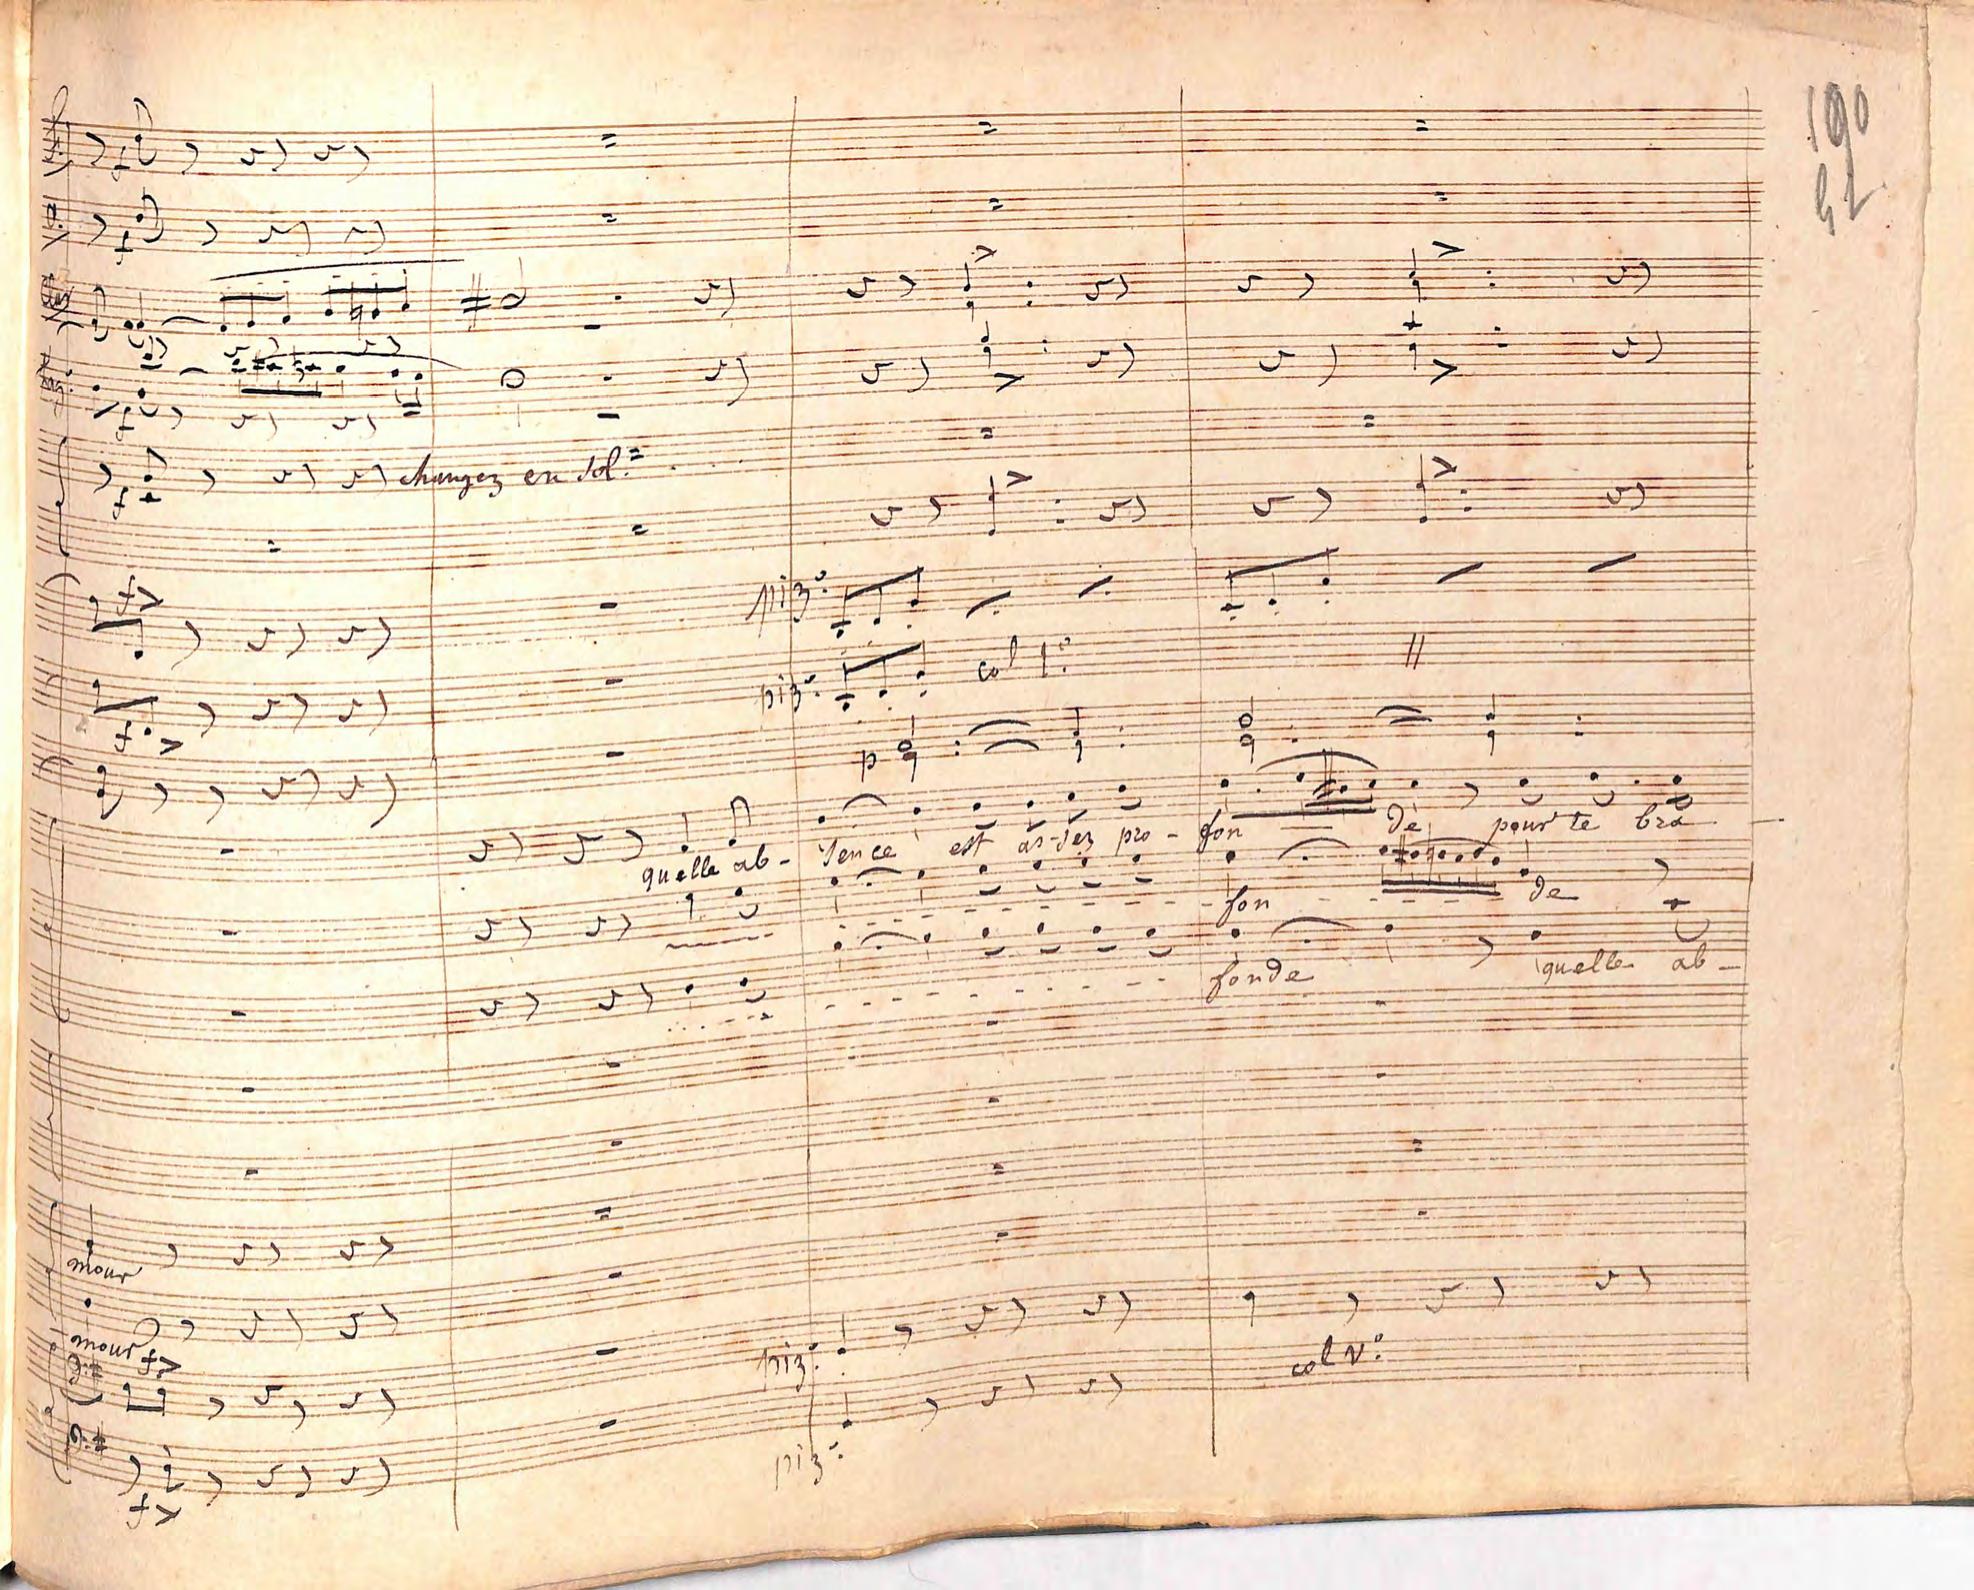 190
42
changez en Sol.
piz:
piz: col 1º:
p
quelle ab- sence est assez pro- fon de pour te bra
fon de
fonde quelle ab-
mour
mour
piz:
col v:
piz: